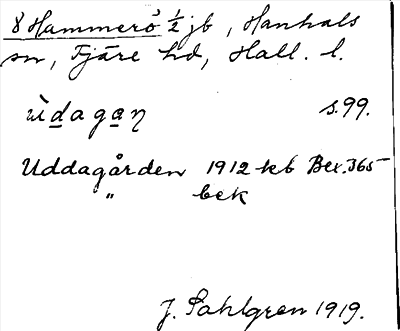 8 Hammerö 1/2 jb, Hanhals
sn, Fjäre hd, Hall. l.
ùdagaη s.99.
Uddagården 1912 kb Bex.365
" bek
J. Sahlgren 1919.